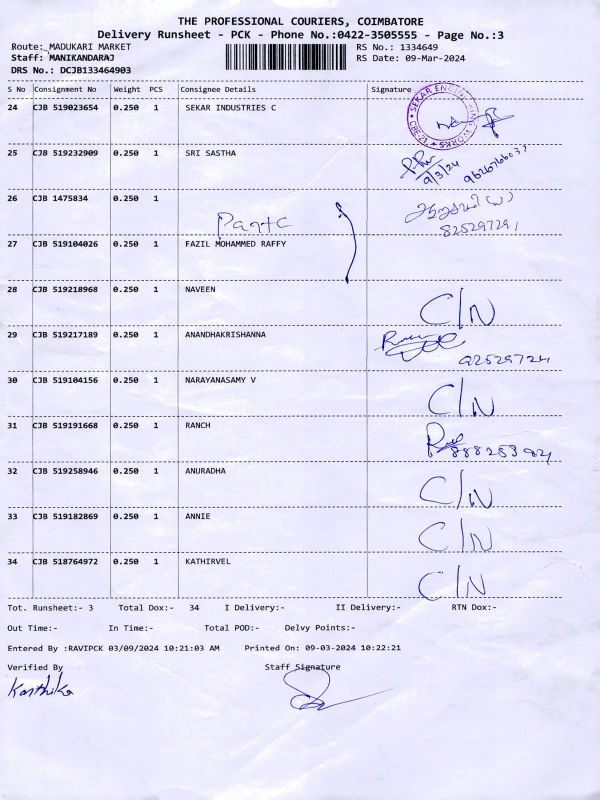 THE PROFESSIONAL COURIERS, COIMBATORE
Delivery Runsheet - PCK - Phone No.:0422-3505555 - Page No.:3
Route: MADUKARI MARKET
RS No.: 1334649
Staff: MANIKANDARAJ
RS Date: 09-Mar-2024
DRS No.: DCJB133464903
S No Consignment No Weight PCS Consignee Details Signature
24 CJB 519023654 0.250 1 SEKAR INDUSTRIES C
SEKAR ENGINEERING WORKS
25 CJB 519232909 0.250 1 SRI SASTHA
9/3/24
26 CJB 1475834 0.250 1
27 CJB 519104026 0.250 1 FAZIL MOHAMMED RAFFY
28 CJB 519218968 0.250 1 NAVEEN C/N
29 CJB 519217189 0.250 1 ANANDHAKRISHANNA
30 CJB 519104156 0.250 1 NARAYANASAMY V C/N
31 CJB 519191668 0.250 1 RANCH
32 CJB 519258946 0.250 1 ANURADHA C/N
33 CJB 519182869 0.250 1 ANNIE C/N
34 CJB 518764972 0.250 1 KATHIRVEL C/N
Tot. Runsheet:- 3 Total Dox:- 34 I Delivery:- II Delivery:- RTN Dox:-
Out Time:- In Time:- Total POD:- Delvy Points:-
Entered By :RAVIPCK 03/09/2024 10:21:03 AM Printed On: 09-03-2024 10:22:21
Verified By Staff Signature
Karthika